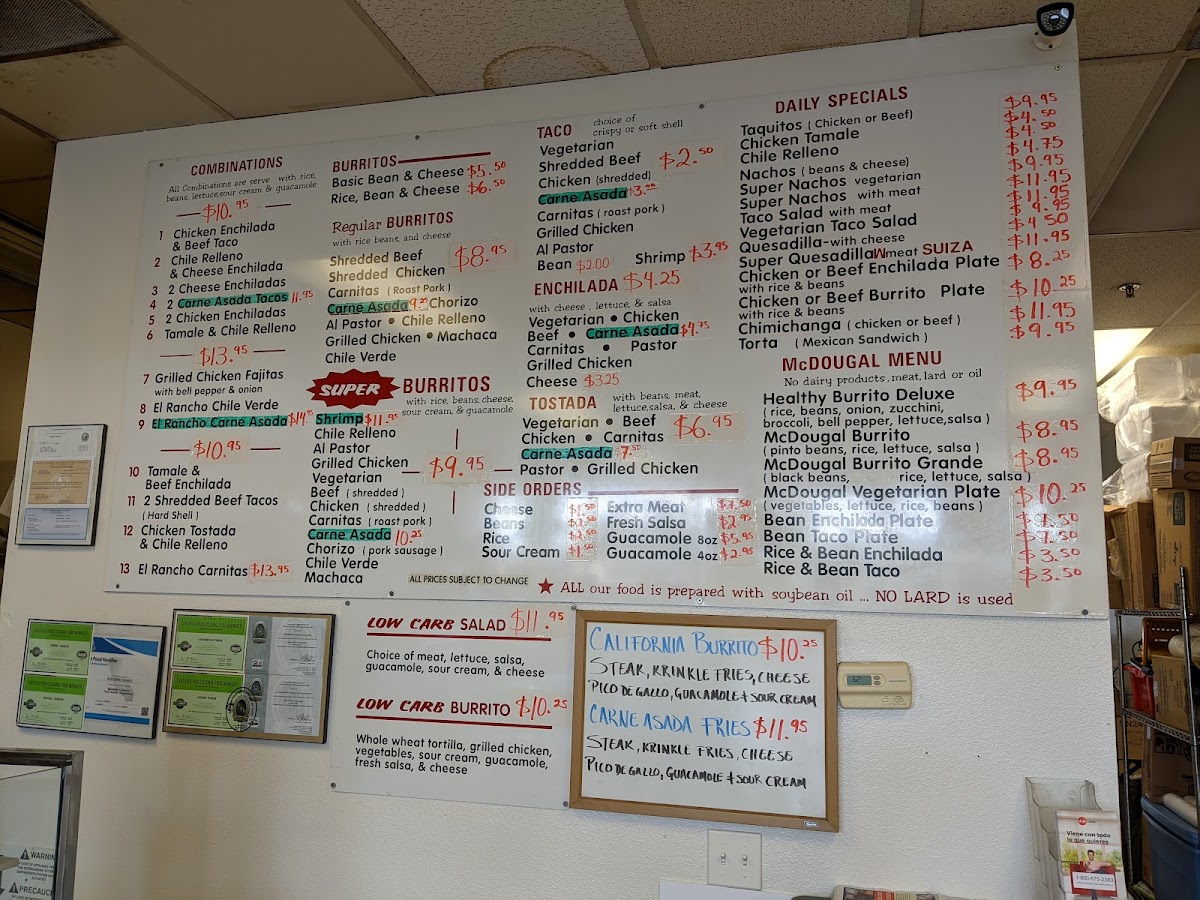 COMBINATIONS
All Combinations are serve with rice,
beans, lettuce, sour cream & guacamole
$10.95
1 Chicken Enchilada
& Beef Taco
2 Chile Relleno
& Cheese Enchilada
3 2 Cheese Enchiladas
4 2 Carne Asada Tacos 11.95
5 2 Chicken Enchiladas
6 Tamale & Chile Relleno
$13.95
7 Grilled Chicken Fajitas
with bell pepper & onion
8 El Rancho Chile Verde
9 El Rancho Carne Asada $14.95
$10.95
10 Tamale &
Beef Enchilada
11 2 Shredded Beef Tacos
( Hard Shell )
12 Chicken Tostada
& Chile Relleno
13 El Rancho Carnitas $13.95
BURRITOS
Basic Bean & Cheese $5.50
Rice, Bean & Cheese $6.50
Regular BURRITOS
with rice beans, and cheese
$8.95
Shredded Beef
Shredded Chicken
Carnitas ( Roast Pork )
Carne Asada 9.25 Chorizo
Al Pastor • Chile Relleno
Grilled Chicken • Machaca
Chile Verde
SUPER BURRITOS
with rice, beans, cheese,
sour cream, & guacamole
Shrimp $11.95
Chile Relleno
Al Pastor
Grilled Chicken
Vegetarian
$9.95
Beef ( shredded )
Chicken ( shredded )
Carnitas ( roast pork )
Carne Asada 10.25
Chorizo ( pork sausage )
Chile Verde
Machaca
TACO choice of
crispy or soft shell
Vegetarian
Shredded Beef $2.50
Chicken (shredded)
Carne Asada
Carnitas ( roast pork )
Grilled Chicken
Al Pastor
Bean $2.00 Shrimp $3.95
ENCHILADA $4.25
with cheese , lettuce, & salsa
Vegetarian • Chicken
Beef • Carne Asada $4.75
Carnitas • Pastor
Grilled Chicken
Cheese $3.25
TOSTADA with beans, meat,
lettuce, salsa, & cheese
Vegetarian • Beef $6.95
Chicken • Carnitas
Carne Asada $7.50
Pastor • Grilled Chicken
SIDE ORDERS
Cheese
Beans
Rice
Sour Cream
Extra Meat
Fresh Salsa $2.95
Guacamole 8oz $5.95
Guacamole 4oz $2.95
DAILY SPECIALS
Taquitos ( Chicken or Beef) $9.95
Chicken Tamale $4.50
Chile Relleno $4.50
Nachos ( beans & cheese) $4.75
Super Nachos vegetarian $9.95
Super Nachos with meat $11.95
Taco Salad with meat $11.95
Vegetarian Taco Salad
Quesadilla-with cheese $4.50
Super Quesadilla W meat SUIZA $11.95
Chicken or Beef Enchilada Plate $8.25
with rice & beans
Chicken or Beef Burrito Plate $10.25
with rice & beans
Chimichanga ( chicken or beef ) $11.95
Torta ( Mexican Sandwich ) $9.95
McDOUGAL MENU
No dairy products, meat, lard or oil
Healthy Burrito Deluxe $9.95
( rice, beans, onion, zucchini,
broccoli, bell pepper, lettuce,salsa )
McDougal Burrito $8.95
( pinto beans, rice, lettuce, salsa )
McDougal Burrito Grande $8.95
( black beans, rice, lettuce, salsa )
McDougal Vegetarian Plate $10.25
( vegetables, lettuce, rice, beans )
Bean Enchilada Plate
Bean Taco Plate
Rice & Bean Enchilada $3.50
Rice & Bean Taco $3.50
ALL PRICES SUBJECT TO CHANGE
★ ALL our food is prepared with soybean oil ... NO LARD is used
LOW CARB SALAD $11.95
Choice of meat, lettuce, salsa,
guacamole, sour cream, & cheese
LOW CARB BURRITO $10.25
Whole wheat tortilla, grilled chicken,
vegetables, sour cream, guacamole,
fresh salsa, & cheese
CALIFORNIA BURRITO $10.25
STEAK, KRINKLE FRIES, CHEESE
PICO DE GALLO, GUACAMOLE + SOUR CREAM
CARNE ASADA FRIES $11.95
STEAK, KRINKLE FRIES, CHEESE
PICO DE GALLO, GUACAMOLE + SOUR CREAM
Food Handler
WARNING
PRECAUC
Viene con todo
lo que quieres
1-800-675-2383